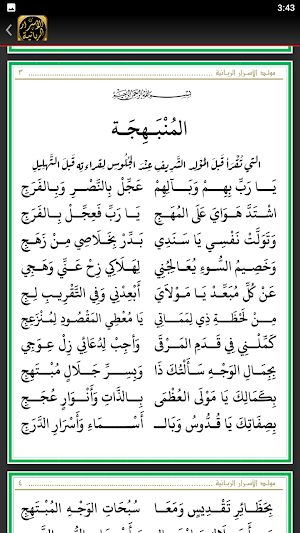 3:43
الأسرار الربانية
مولد الأسرار الربانية ٣
بسم الله الرحمن الرحيم
المُنْبَهِجَة
التي تُقْرَأُ قَبلَ المَوْلِدِ الشَّرِيفِ عِنْدَ الجُلُوسِ لِقِرَاءَتِهِ قَبلَ التَّهْلِيلِ
يَا رَبِّ بِهِمْ وَبِآلِهِمْ عَجِّلْ بِالنَّصْرِ وَبِالفَرَجِ
اشْتَدَّ هَوَايَ عَلَى المُهَجِ يَا رَبِّ فَعَجِّلْ بِالفَرَجِ
وَتَوَلَّتْ نَفْسِي يَا سَنَدِي بَدِّرْ بِخَلَاصِي مِنْ رَهَجِ
وَخَصِيمُ السُّوءِ يُعَالِجُنِي لِهَلَاكِي زِحْ عَنِّي وَهَجِي
عَنْ كُلِّ مُبَعِّدٍ يَا مَوْلَايَ أَبْعِدْنِي وَفِي التَّقْرِيبِ لِجِ
مِنْ لَحْظَةِ ذِي لِمَمَاتِي يَا مُعْطِي المَقْصُودِ لِمُنْزَعِجِ
كَمِّلْنِي فِي قَدَمِ المَرْقَى وَأَجِبْ لِدُعَائِي زِلْ عِوَجِي
بِجَمَالِ الوَجْهِ سَأَلْتُكَ ذَا وَبِسِرِّ جَلَالٍ مُبْتَهِجِ
بِكَمَالِكَ يَا مَوْلَى العُظْمَى بِالذَّاتِ وَأَنْوَارِ عُجُجِ
بِصِفَاتِكَ يَا قُدُّوسُ وَبَالـ أَسْمَاءِ وَأَسْرَارِ الدَّرَجِ
مولد الأسرار الربانية ٤
بِحَظَائِرِ تَقْدِيسٍ وَمَعَا سُبُحَاتِ الوَجْهِ المُبْتَهِجِ